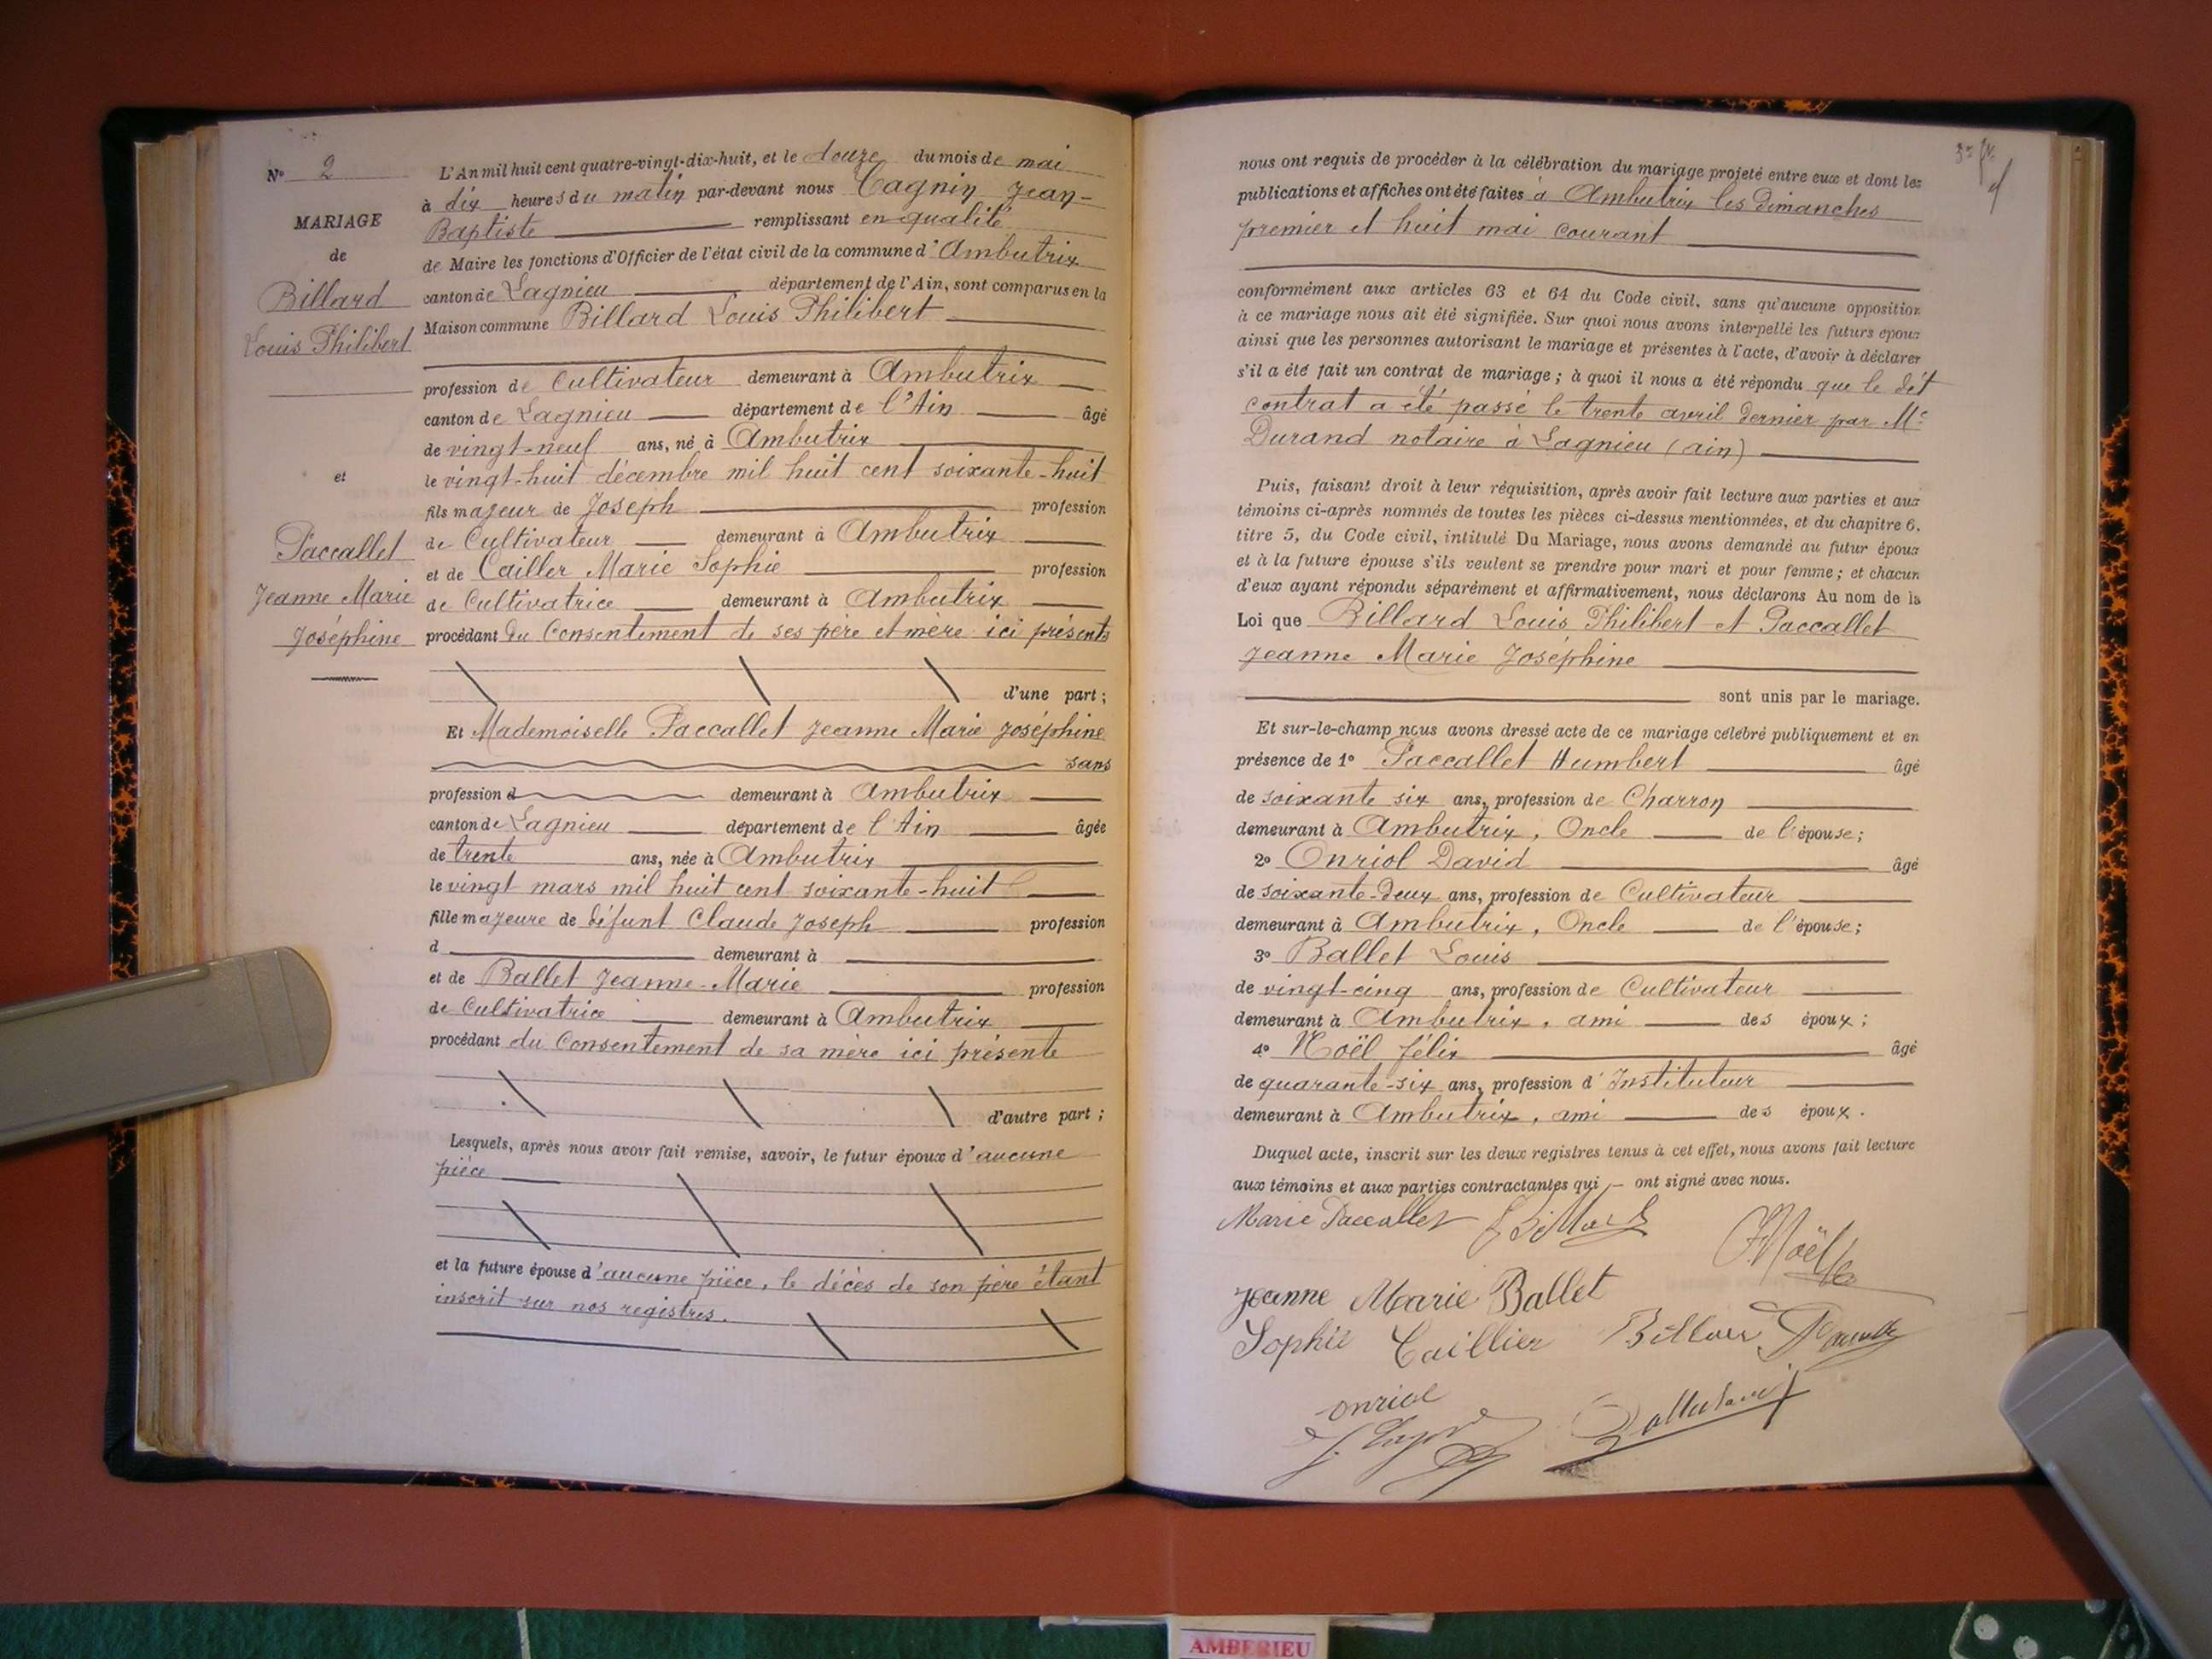 N° 2
MARIAGE
de
Billard
Louis Philibert
et
Paccallet
Jeanne Marie
Joséphine
L'An mil huit cent quatre-vingt-dix-huit, et le douze du mois de mai
à dix heures du matin par-devant nous Cagnin Jean-
Baptiste remplissant en qualité
de Maire les fonctions d'Officier de l'état civil de la commune d'Ambutrix
canton de Lagnieu département de l'Ain, sont comparus en la
Maison commune Billard Louis Philibert
profession de Cultivateur demeurant à Ambutrix
canton de Lagnieu département de l'Ain âgé
de vingt-neuf ans, né à Ambutrix
le vingt-huit décembre mil huit cent soixante-huit
fils majeur de Joseph profession
de Cultivateur demeurant à Ambutrix
et de Cailler Marie Sophie profession
de Cultivatrice demeurant à Ambutrix
procédant du Consentement de ses père et mère ici présents
d'une part;
Et Mademoiselle Paccallet Jeanne Marie Joséphine
sans
profession d demeurant à Ambutrix
canton de Lagnieu département de l'Ain âgée
de trente ans, née à Ambutrix
le vingt mars mil huit cent soixante-huit
fille majeure de défunt Claude Joseph profession
d demeurant à
et de Ballet Jeanne-Marie profession
de Cultivatrice demeurant à Ambutrix
procédant du Consentement de sa mère ici présente
d'autre part;
Lesquels, après nous avoir fait remise, savoir, le futur époux d'aucune
pièce
et la future épouse d'aucune pièce, le décès de son père étant
inscrit sur nos registres.
nous ont requis de procéder à la célébration du mariage projeté entre eux et dont les
publications et affiches ont été faites a Ambutrix les dimanches
premier et huit mai courant
conformément aux articles 63 et 64 du Code civil, sans qu'aucune opposition
à ce mariage nous ait été signifiée. Sur quoi nous avons interpellé les futurs époux
ainsi que les personnes autorisant le mariage et présentes à l'acte, d'avoir à déclarer
s'il a été fait un contrat de mariage; à quoi il nous a été répondu que le dit
contrat a été passé le trente avril dernier par Me
Durand notaire à Lagnieu (ain)
Puis, faisant droit à leur réquisition, après avoir fait lecture aux parties et aux
témoins ci-après nommés de toutes les pièces ci-dessus mentionnées, et du chapitre 6,
titre 5, du Code civil, intitulé Du Mariage, nous avons demandé au futur époux
et à la future épouse s'ils veulent se prendre pour mari et pour femme; et chacun
d'eux ayant répondu séparément et affirmativement, nous déclarons Au nom de la
Loi que Billard Louis Philibert et Paccallet
Jeanne Marie Joséphine
sont unis par le mariage.
Et sur-le-champ nous avons dressé acte de ce mariage célébré publiquement et en
présence de 1° Paccallet Humbert âgé
de soixante six ans, profession de Charron
demeurant à Ambutrix, Oncle de l'épouse;
2° Onriol David âgé
de soixante-deux ans, profession de Cultivateur
demeurant à Ambutrix, Oncle de l'épouse;
3° Ballet Louis
de vingt-cinq ans, profession de Cultivateur
demeurant à Ambutrix, ami des époux;
4° Noël félix âgé
de quarante-six ans, profession d'Instituteur
demeurant à Ambutrix, ami des époux.
Duquel acte, inscrit sur les deux registres tenus à cet effet, nous avons fait lecture
aux témoins et aux parties contractantes qui ont signé avec nous.
Marie Paccallet L Billard
FNoël
Jeanne Marie Ballet
Sophie Caillier Billard
onriol
AMBERIEU